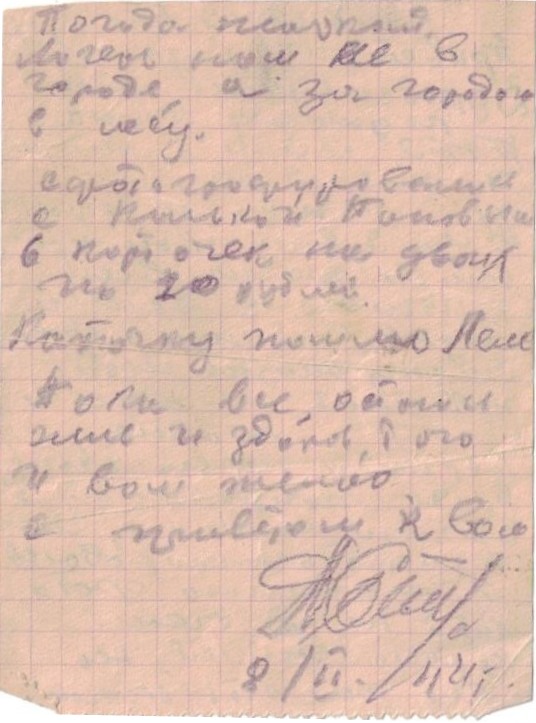 Погода жаркая.
Лагерь наш не в
городе а за городом
в лесу.
сфотографировались
с Колькой Поповым
6 карточек на двоих
по 20 рублей.
Карточку пошлю
Пока все остаюсь
жив и здоров, того
и вам желаю
с приветом к вам
8/II./44г.